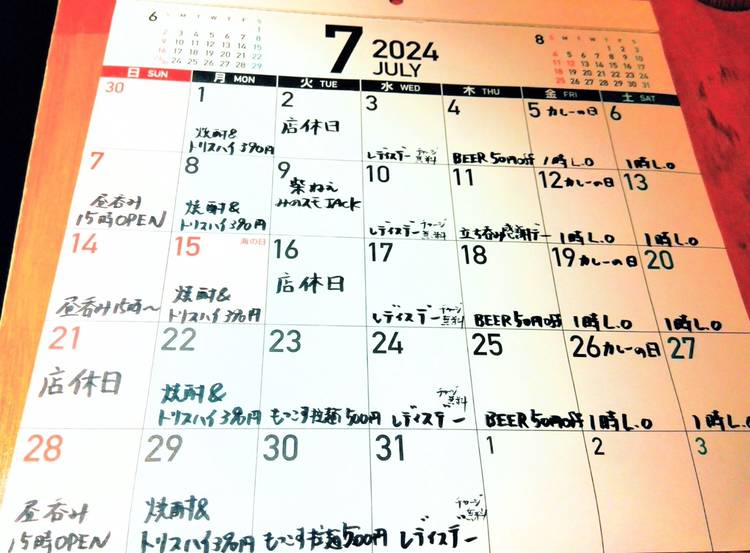 6
S M T W T F S
1
2 3 4 5 6 7 8
9 10 11 12 13 14 15
16 17 18 19 20 21 22
7
2024
JULY
8
S M T W T F S
1 2 3
4 5 6 7 8 9 10
11 12 13 14 15 16 17
18 19 20 21 22 23 24
25 26 27 28 29 30 31
日 SUN 月 MON 火 TUE 水 WED 木 THU 金 FRI 土 SAT
30
1
焼酎&
トリスハイ390円
2
店休日
3
レディスデー チャージ無料
4
BEER 50円off
5 カレーの日
1時L.O
6
1時L.O
7
昼呑み
15時OPEN
8
焼酎&
トリスハイ390円
9
柴ねえ
みのスモJACK
10
レディスデー チャージ無料
11
立ち呑み感謝デー
12 カレーの日
1時L.O
13
1時L.O
14
昼呑み15時〜
15 海の日
焼酎&
トリスハイ390円
16
店休日
17
レディスデー チャージ無料
18
BEER 50円off
19 カレーの日
1時L.O
20
1時L.O
21
店休日
22
焼酎&
トリスハイ390円
23
もっこす拉麺500円
24
レディスデー チャージ無料
25
BEER 50円off
26 カレーの日
1時L.O
27
1時L.O
28
昼呑み
15時OPEN
29
焼酎&
トリスハイ390円
30
もっこす拉麺500円
31
レディスデー チャージ無料
1
2
3